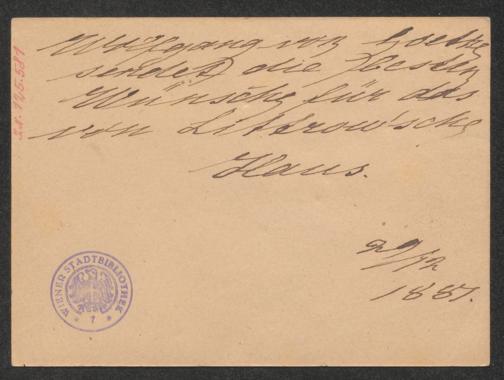 Wolfgang von Goethe
sendet die besten
Wünsche für das
von Littrow'sche
Haus.
29/12
1881.
WIENER STADTBIBLIOTHEK